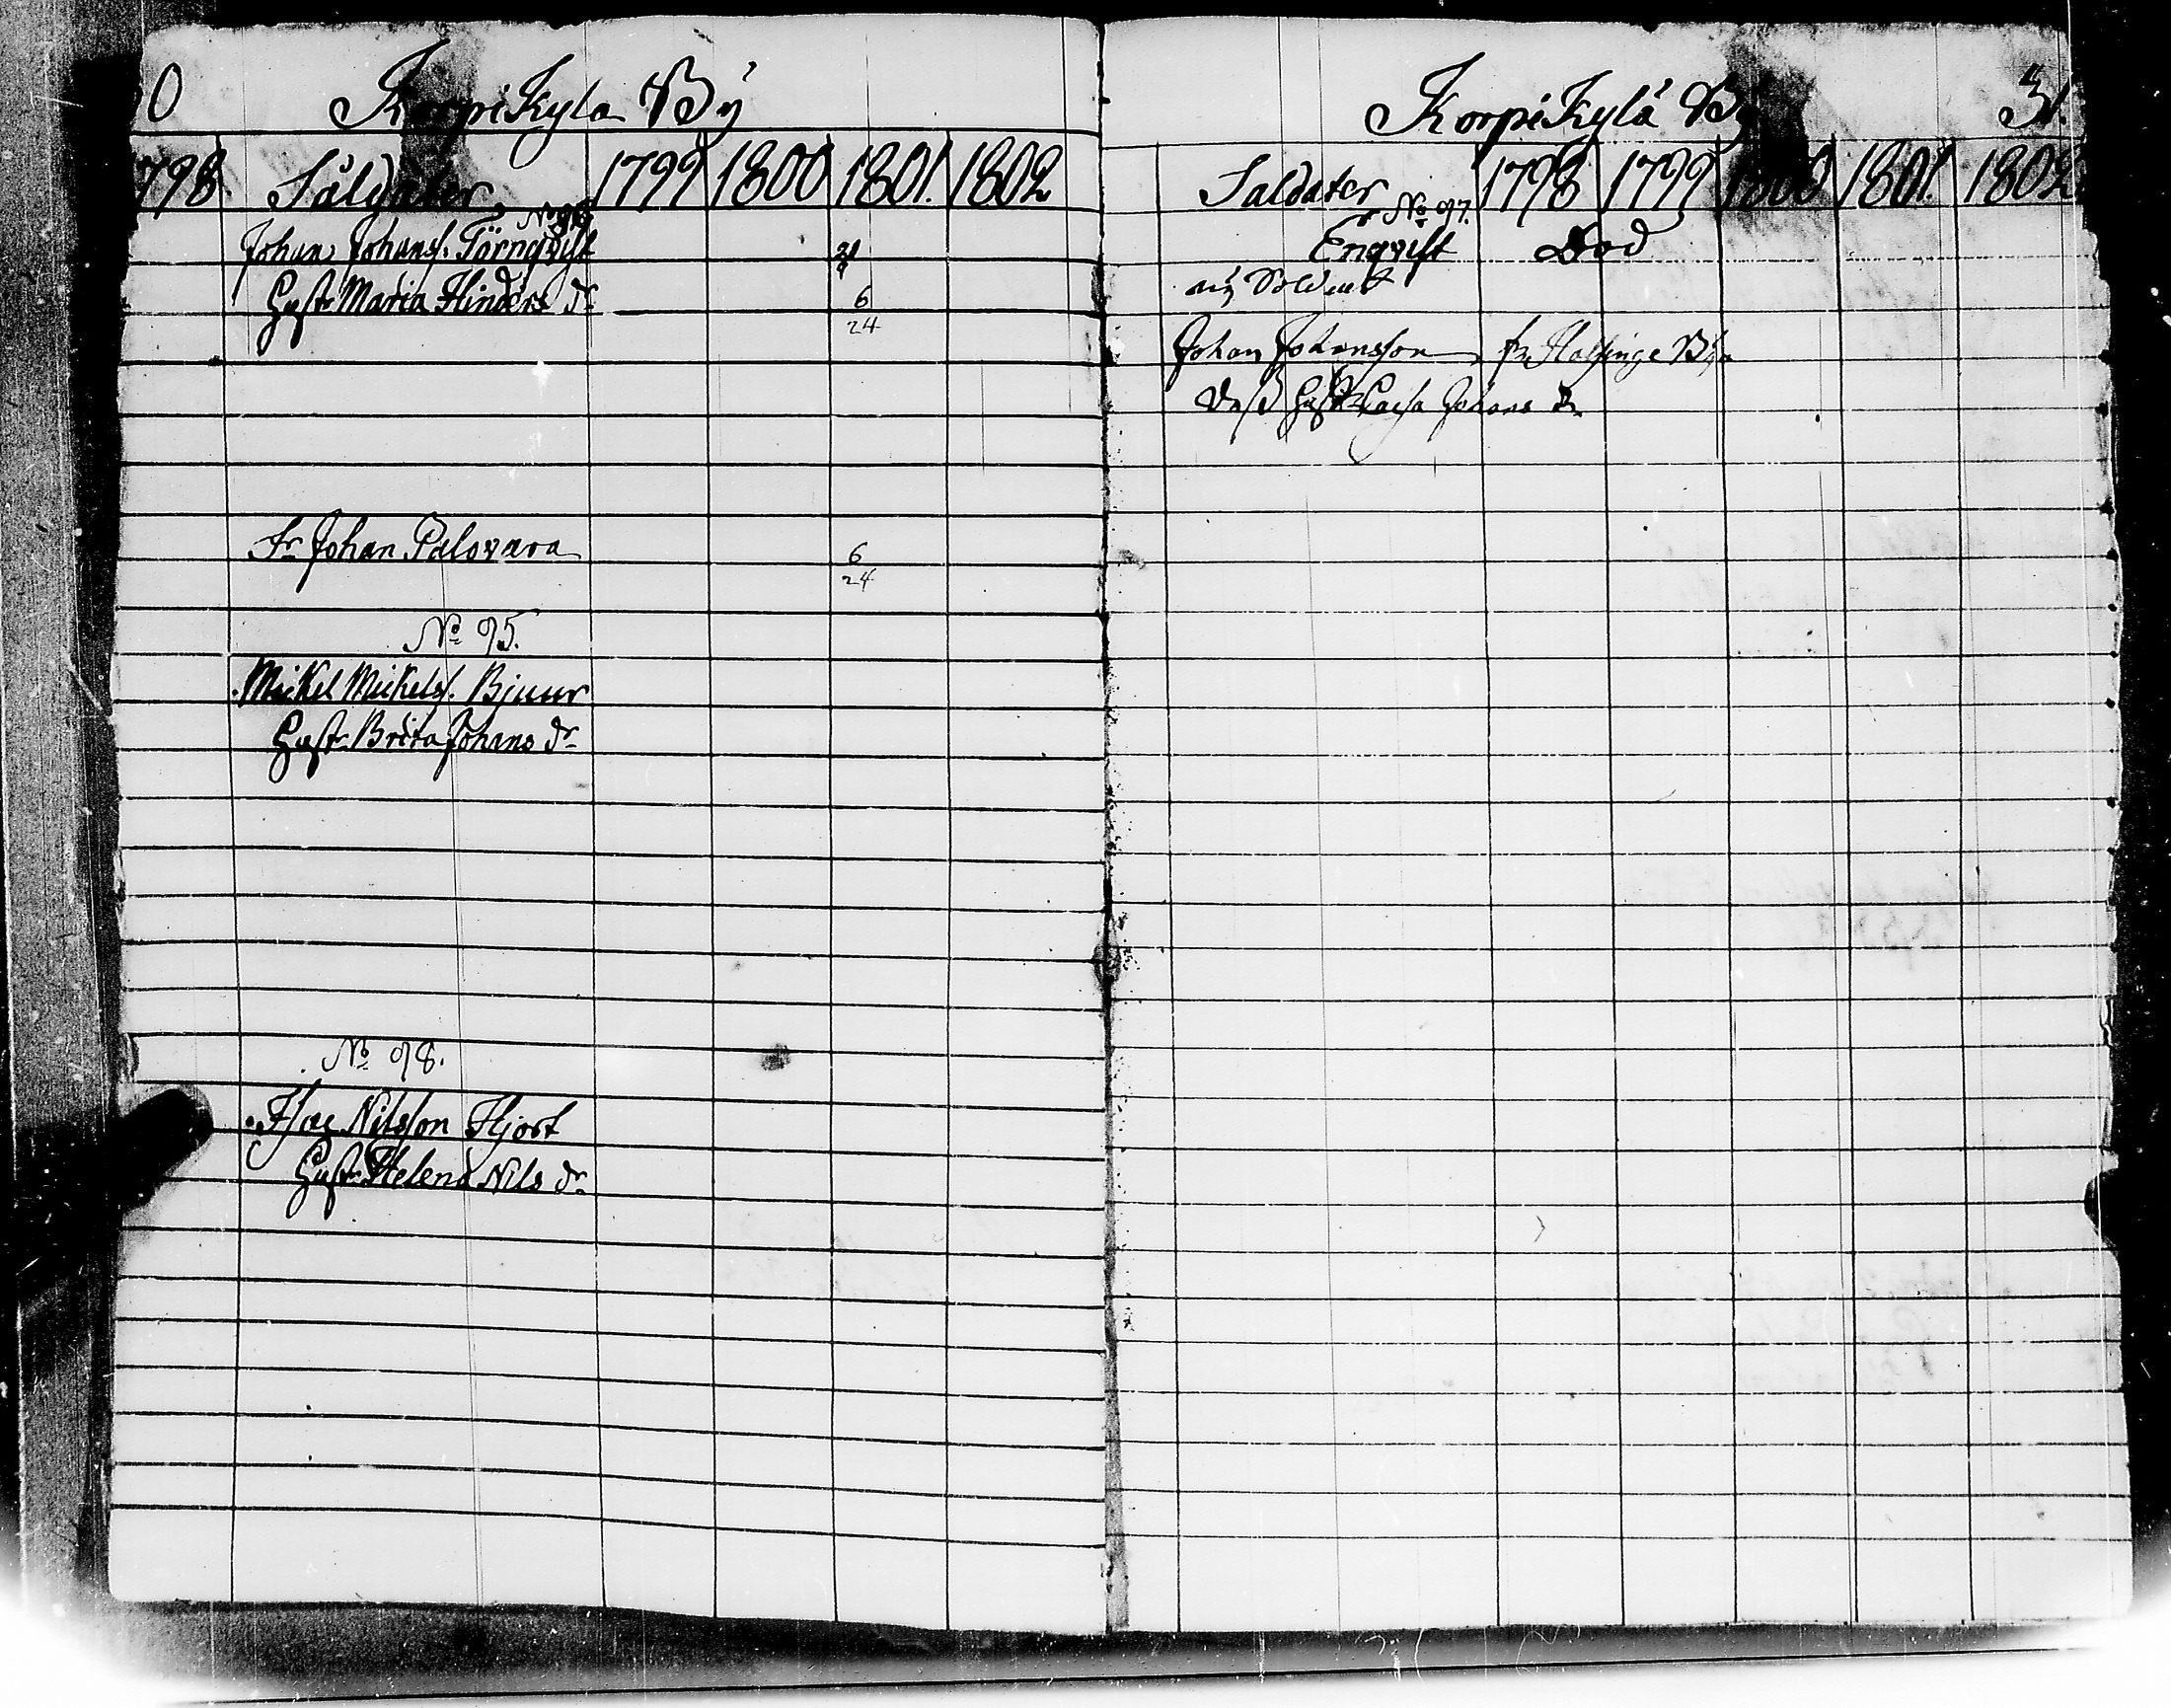 0 KorpiKyla By
798 Såldater 1799 1800 1801. 1802
No
Johan Johanss. Törnqvist
Hust. Maria Hinders dr 6
24
Fr Johan Palovara 6
24
No 95.
Mickel Mickels. Bjuur
Hustr Brita Johans dr
No 98.
Isac Nilsson Hjort
Hustr Helena Nils dr
KorpiKylä By 31.
Saldater 1798 1799 1800 1801. 1802
No 97.
Enqvist Död
ny Soldat
Johan Johansson
Hustr Cajsa Johans dr